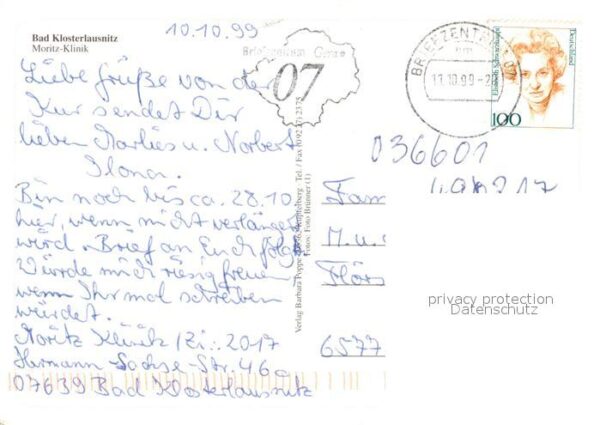 10.10.99
Bad Klosterlausnitz
Moritz-Klinik
Liebe Grüße von der
Kur sendet Dir
lieben Marlies u. Norbert
Ilona.
Bin noch bis ca. 28.10.
hier, wenn nicht verlängert
wird. Brief an Euch folgt.
Würde mich riesig freuen,
wenn Ihr mal schreiben
würdet.
Moritz Klinik / Zi.: 2017
Hermann Sachse-Str. 46
07639 Bad Klosterlausnitz
Briefzentrum Gera
07
BRIEFZENTRUM 07
11.10.99-2
Deutschland
100
036601
Fam
M. u.
6577
Tel. / Fax
Fotos: Foto Brunner (1)
privacy protection
Datenschutz